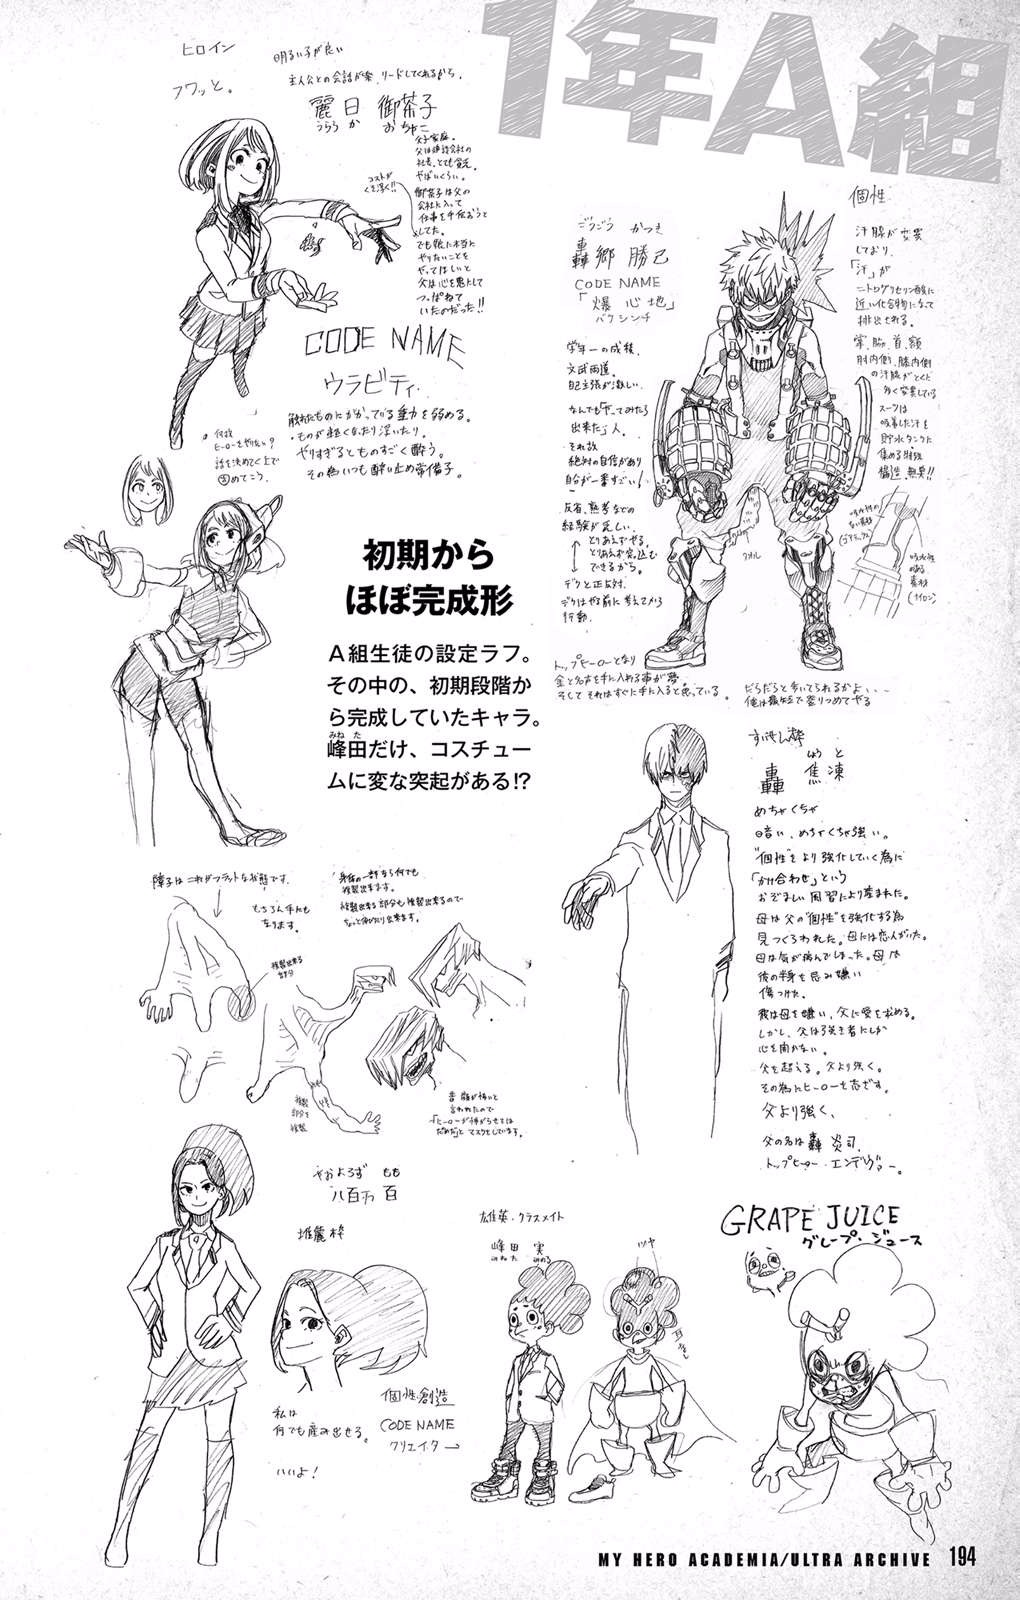 1年A組
ヒロイン
フワッと。
明るい子が良い
主人公との会話が楽、リードしてくれるから。
麗日 御茶子
うららか おちゃこ
父子家庭。
父は建設会社の
社長、とても貧乏。
やばいくらい。
御茶子は父の
会社に入って
仕事を手伝おうと
してた。
でも娘に本当に
やりたいことを
やってほしいと
父は心を鬼にして
つっぱねて
いたのだった!!
コストが
くそ浮く!!
CODE NAME
ウラビティ
触れたものにかかっている重力を弱める。
・ものが軽くなったり浮いたり。
やりすぎるとものすごく酔う。
その為いつも酔い止め常備子。
何故
ヒーローをやりたい?
話を決めてく上で
固めてこう。
初期から
ほぼ完成形
A組生徒の設定ラフ。
その中の、初期段階か
ら完成していたキャラ。
みねた
峰田だけ、コスチュー
ムに変な突起がある!?
ごうごう かつき
轟郷 勝己
CODE NAME
「爆心地」
バクシンチ
学年一の成績。
文武両道。
自己主張が激しい。
なんでも「やってみたら
出来た」人。
それ故
絶対の自信があり
自分が一番すごい!
反省、熟考などの
経験が乏しい。
とりあえずやる。
とりあえず突っ込む
できるから。
デクと正反対。
デクはやる前に考えてから
行動。
トップヒーローとなり
金と名声を手に入れる事が夢。
そして それはすぐに手に入ると思っている。
だらだらと歩いてられるかよ...
俺は最短で登りつめてやる
個性
汗腺が変異
しており、
「汗」が
ニトログリセリン酸に
近い化合物になって
排出される。
掌、脇、首、額
肘内側、膝内側
の汗腺がとくに
多く変異している
スーツは
吸着した汗を
貯水タンクに
集める特殊
構造、無臭!!
タオル
吸水性
のある
素材
(ナイロン)
すいせん枠
しょうと
轟 焦凍
めちゃくちゃ
暗い、めちゃくちゃ強い。
"個性"をより強化していく為に
「かけ合わせ」という
おぞましい風習により産まれた。
母は父の"個性"を強化する為
見つくろわれた。母には恋人がいた。
母は気が病んでしまった。母は
彼の半身を忌み嫌い
傷つけた。
我は母を嫌い、父に愛を求める。
しかし、父は強き者にしか
心を開かない。
父を超える。父より強く。
その為にヒーローを志ざす。
父より強く、
父の名は轟 炎司
トップヒーロー エンデヴァー。
障子は これがフラットな状態です。
もちろん手にも
なります。
身体の一部なら何でも
複製出来ます。
複製出来る部分も複製出来るので
もっと伸びたり出来ます。
複製出来る
部分
複製
部分を
複製
昔 顔が怖いと
言われたので
「ヒーローが怖がらせては
だめだ」と マスクをしています。
やおよろず もも
八百万 百
推薦枠
個性、創造
CODE NAME
クリエイター
私は
何でも産み出せる。
いいよ!
雄英・クラスメイト
峰田 実
みねた みのる
ツヤ
GRAPE JUICE
グレープ・ジュース
MY HERO ACADEMIA/ULTRA ARCHIVE 194